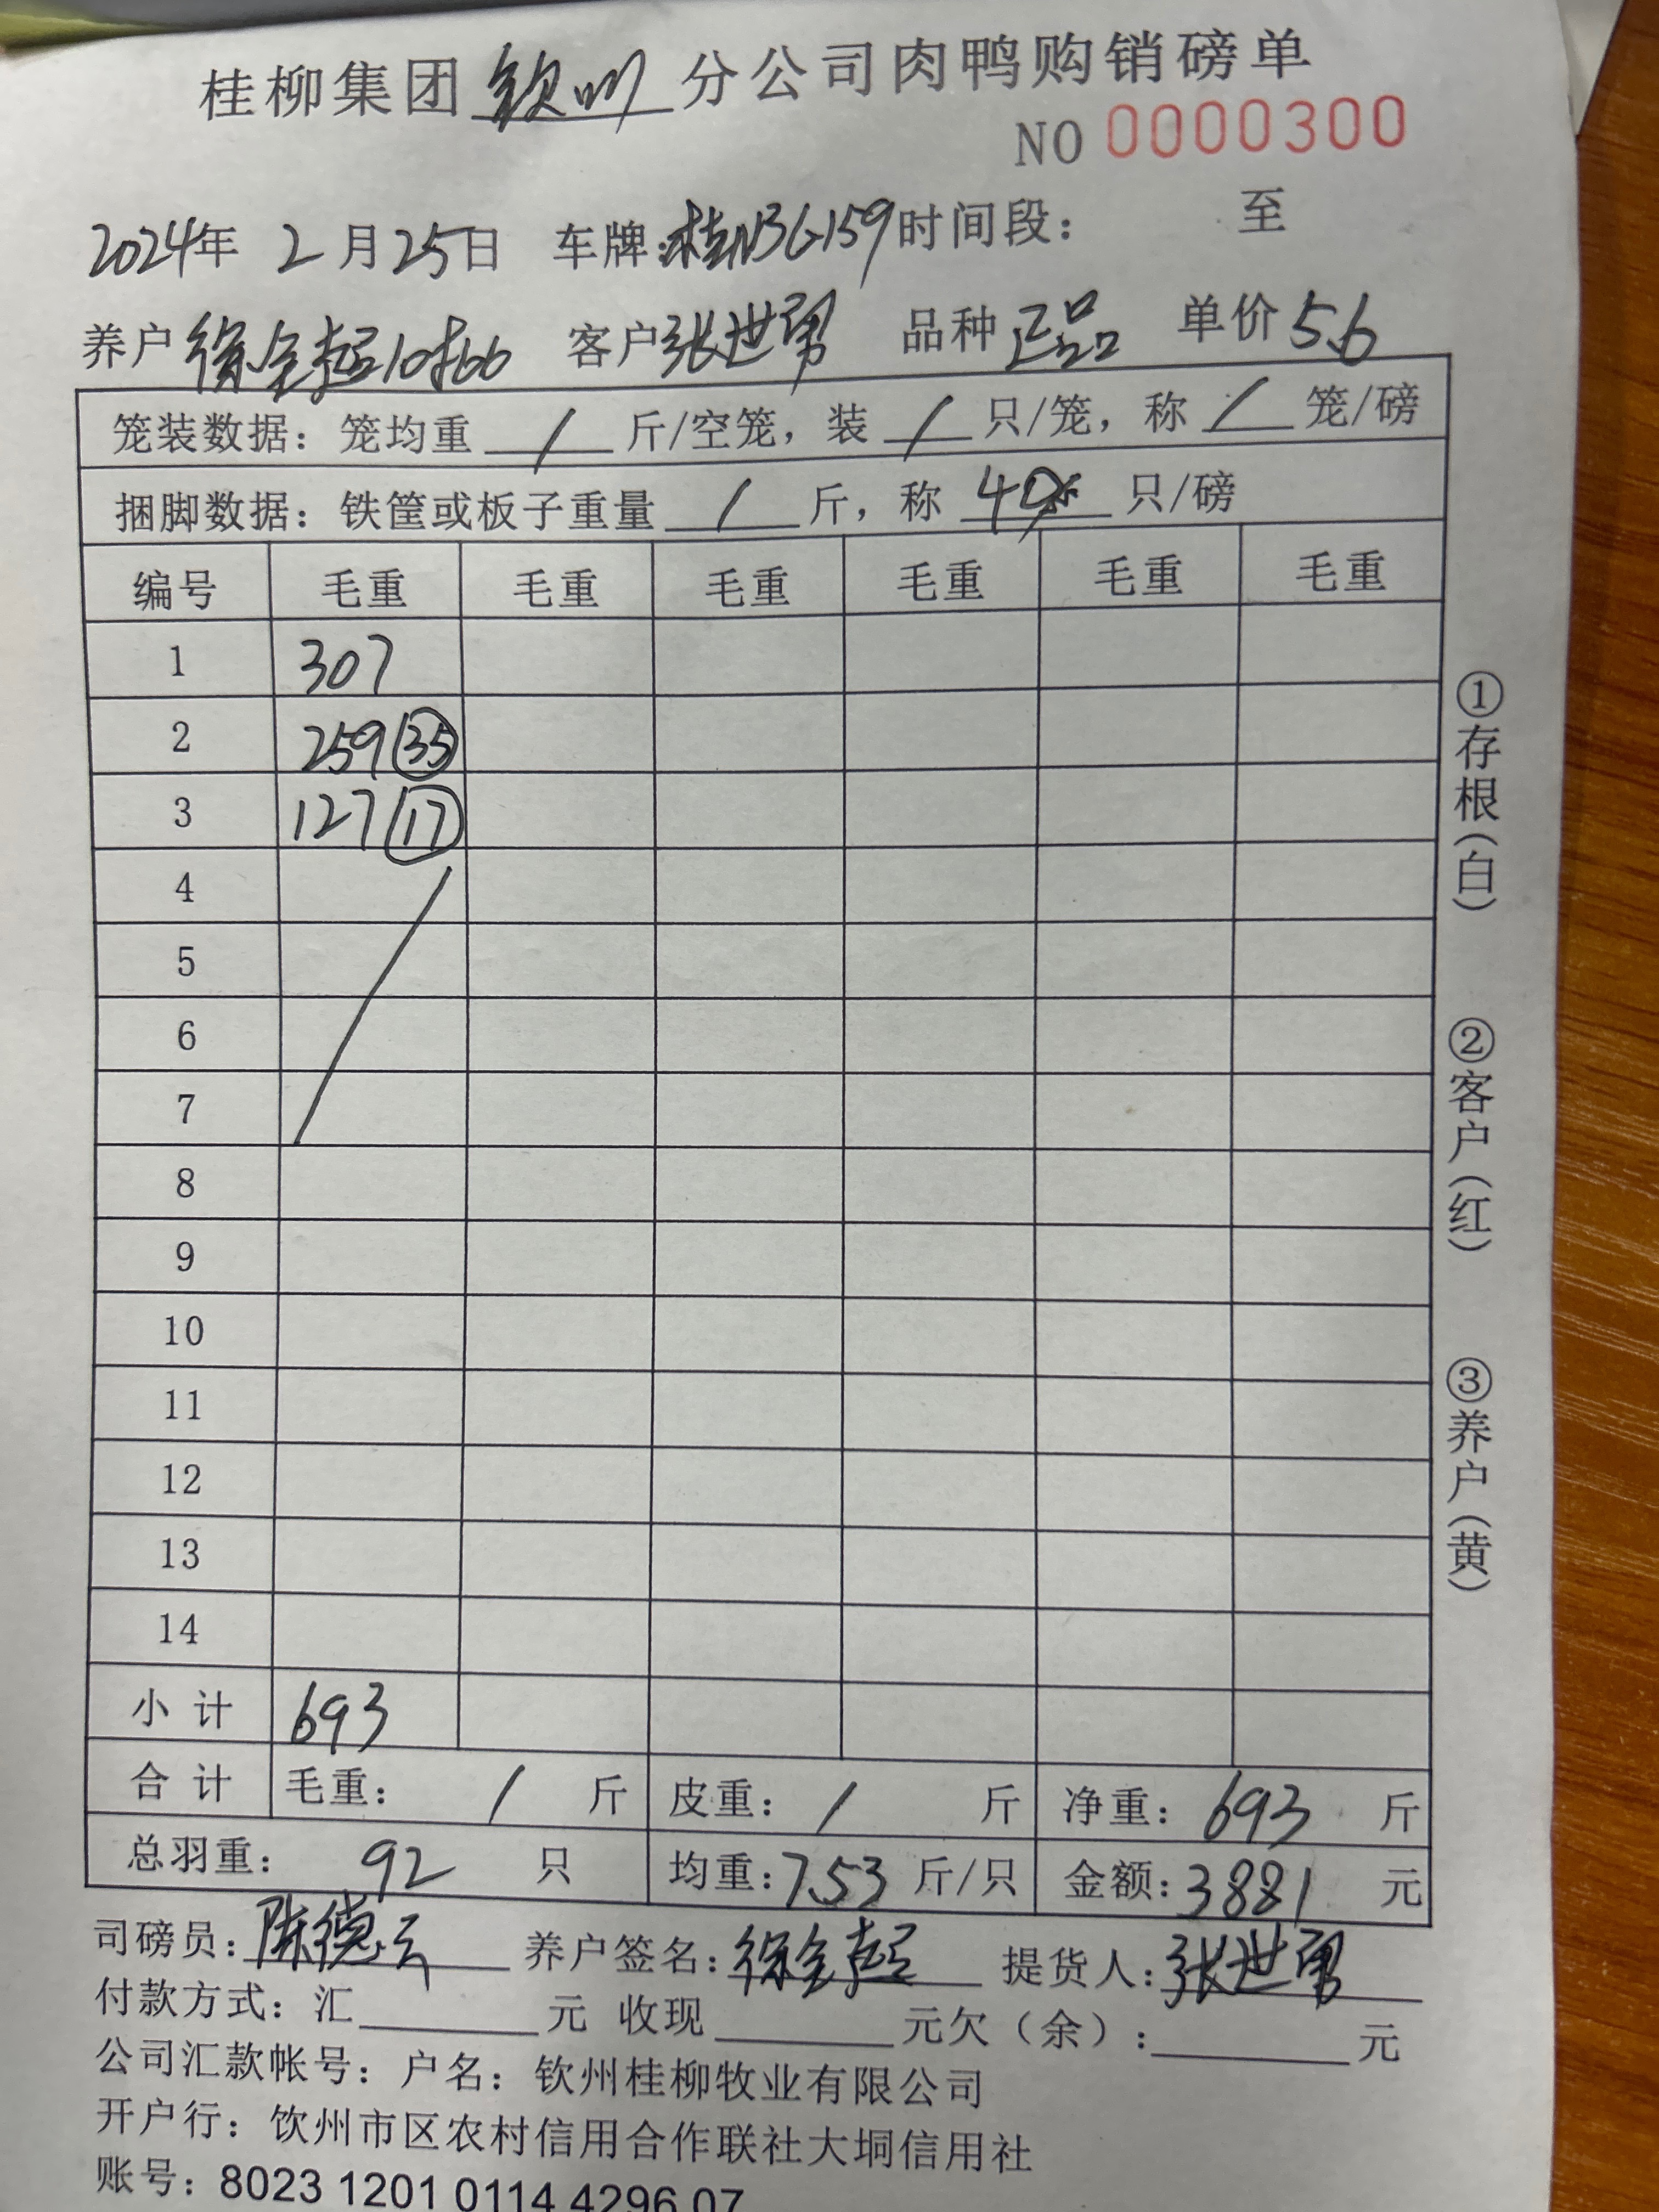 桂柳集团 钦州 分公司肉鸭购销磅单
NO 0000300
2024年 2月25日 车牌:桂N3G159 时间段: 至
养户 徐全超10706 客户 张世勇 品种 正品 单价 5.6
笼装数据: 笼均重 / 斤/空笼, 装 / 只/笼, 称 / 笼/磅
捆脚数据: 铁筐或板子重量 / 斤, 称 40 只/磅
编号 毛重 毛重 毛重 毛重 毛重 毛重
1 307
2 259 (35)
3 127 (17)
4
5
6
7
8
9
10
11
12
13
14
小 计 693
合 计 毛重: / 斤 皮重: / 斤 净重: 693 斤
总羽重: 92 只 均重: 7.53 斤/只 金额: 3881 元
司磅员: 陈德云 养户签名: 徐全超 提货人: 张世勇
付款方式: 汇 元 收现 元欠(余): 元
公司汇款帐号: 户名: 钦州桂柳牧业有限公司
开户行: 钦州市区农村信用合作联社大垌信用社
账号: 8023 1201 0114 4296 07
①存根(白)
②客户(红)
③养户(黄)